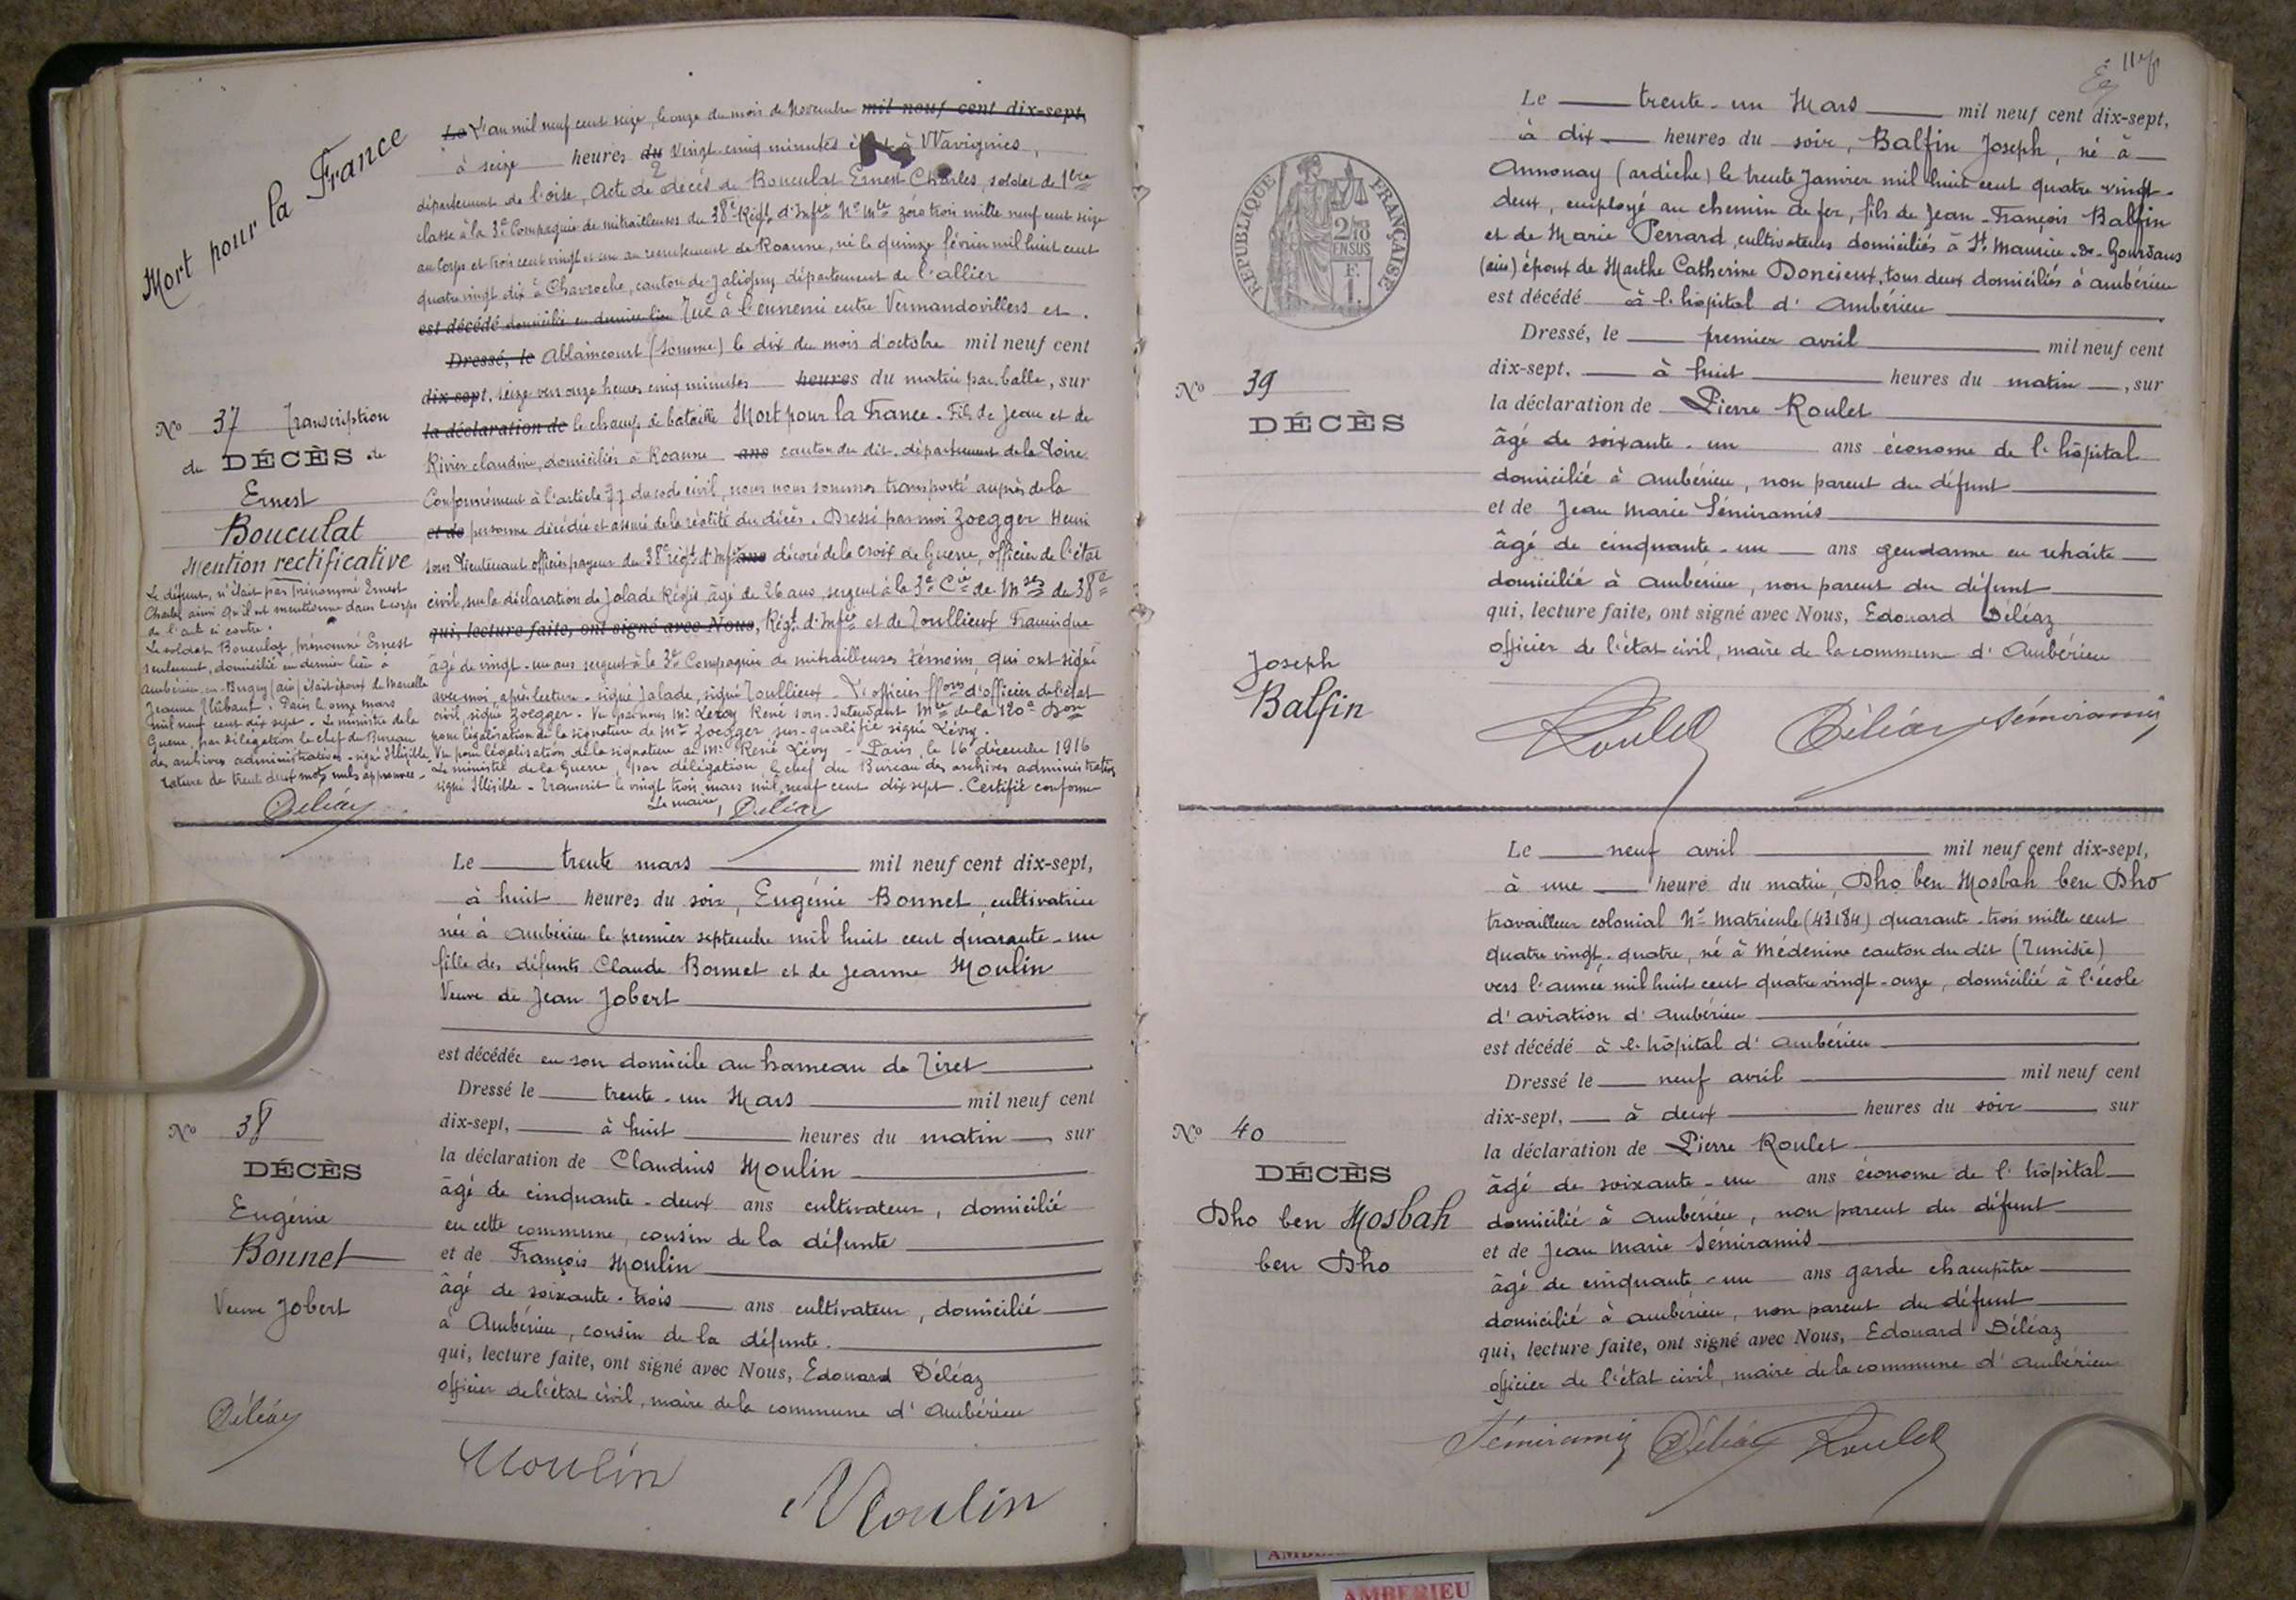 Mort pour la France
N° 37 Transcription
de DÉCÈS de
Ernest
Bouculat
Mention rectificative
Le défunt, n'était pas prénommé Ernest
Charles ainsi qu'il est mentionné dans le corps
de l'acte ci contre.
Le soldat Bouculat, prénommé Ernest
seulement, domicilié en dernier lieu à
Ambérieu-en-Bugey (ain) était époux de Marcelle
Jeanne . Paris le onze mars
mil neuf cent dix sept. Le ministre de la
Guerre, par délégation le chef du Bureau
des archives administratives - signé Illisible
rature de trente deux mots nuls approuvée -
Déléaz
Le L'an mil neuf cent seize, le onze du mois de Novembre mil neuf cent dix-sept,
à seize heures du vingt-cinq minutes étant à Wavignies,
département de l'oise, Acte de décès de Bouculat Ernest Charles, soldat de 1ère
classe à la 3e Compagnie de mitrailleuses du 38e Régt d'Infie No Mle zéro trois mille neuf cent seize
au corps et trois cent vingt et un au recrutement de Roanne, né le quinze février mil huit cent
quatre vingt dix à Chavroche, canton de Jaligny département de l'allier
est décédé domicilié en dernier lieu Tué à l'ennemi entre Vermandovillers et
Dressé, le Ablaincourt (Somme) le dix du mois d'octobre mil neuf cent
dix-sept, seize vers onze heures cinq minutes heures du matin par balle, sur
la déclaration de le champ de bataille Mort pour la France - Fils de Jean et de
Rivier Claudine, domiciliés à Roanne ans canton du dit, département de la Loire
Conformément à l'article 77 du code civil, nous nous sommes transporté auprès de la
et de personne décédée et assuré de la réalité du décès. Dressé par moi Zoegger Henri
sous lieutenant officier payeur du 38e régt d'Infie ans décoré de la croix de Guerre, officier de l'état
civil, sur la déclaration de Jalade Régis, âgé de 26 ans, sergent à la 3e Cie de Mses du 38e
qui, lecture faite, ont signé avec Nous, Régt d'Infie et de Toullieux Francisque
âgé de vingt-un ans sergent à la 3e Compagnie de mitrailleuses témoins, qui ont signé
avec moi, après lecture - signé Jalade, signé Toullieux - L'officier ffons d'officier de l'état
civil, signé Zoegger - Vu par nous Mr Leroy René sous-Intendant Mre de la 120e Don
pour légalisation de la signature de Mr Zoegger sus-qualifié signé Lévy.
Vu pour légalisation de la signature de Mr René Lévy - Paris, le 16 décembre 1916
Le ministre de la Guerre, par délégation le chef du Bureau des archives administratives
signé Illisible - Transcrit le vingt trois mars mil neuf cent dix sept. Certifié conforme
Le maire, Déléaz
N° 38
DÉCÈS
Eugénie
Bonnet
Veuve Jobert
Déléaz
Le trente mars mil neuf cent dix-sept,
à huit heures du soir, Eugénie Bonnet, cultivatrice
née à Ambérieu le premier septembre mil huit cent quarante-un
fille des défunts Claude Bonnet et de Jeanne Moulin
Veuve de Jean Jobert
est décédée en son domicile au hameau de Tiret
Dressé le trente-un Mars mil neuf cent
dix-sept, à huit heures du matin, sur
la déclaration de Claudius Moulin
âgé de cinquante-deux ans cultivateur, domicilié
en cette commune, cousin de la défunte
et de François Moulin
âgé de soixante-trois ans cultivateur, domicilié
à Ambérieu, cousin de la défunte.
qui, lecture faite, ont signé avec Nous, Edouard Déléaz
officier de l'état civil, maire de la commune d'Ambérieu
Moulin
Moulin
RÉPUBLIQUE FRANÇAISE
2/10 EN SUS
F. 1.
N° 39
DÉCÈS
Joseph
Balfin
Le trente-un Mars mil neuf cent dix-sept,
à dix heures du soir, Balfin Joseph, né à
Annonay (ardèche) le trente Janvier mil huit cent quatre vingt-
deux, employé au chemin de fer, fils de Jean-François Balfin
et de Marie Perrard, cultivateurs domiciliés à St Maurice-de-Gourdans
(ain) époux de Marthe Catherine Doncieux, tous deux domiciliés à Ambérieu
est décédé à l'hôpital d'Ambérieu
Dressé, le premier avril mil neuf cent
dix-sept, à huit heures du matin, sur
la déclaration de Pierre Roulet
âgé de soixante-un ans économe de l'hôpital
domicilié à Ambérieu, non parent du défunt
et de Jean Marie Sémiramis
âgé de cinquante-un ans gendarme en retraite
domicilié à Ambérieu, non parent du défunt
qui, lecture faite, ont signé avec Nous, Edouard Déléaz
officier de l'état civil, maire de la commune d'Ambérieu
Roulet Déléaz Sémiramis
N° 40
DÉCÈS
Dho ben Mosbah
ben Dho
Le neuf avril mil neuf cent dix-sept,
à une heure du matin, Dho ben Mosbah ben Dho
travailleur colonial No matricule (43184) quarante-trois mille cent
quatre vingt-quatre, né à Médenine canton du dit (Tunisie)
vers l'année mil huit cent quatre vingt-onze, domicilié à l'école
d'aviation d'Ambérieu
est décédé à l'hôpital d'Ambérieu
Dressé le neuf avril mil neuf cent
dix-sept, à deux heures du soir sur
la déclaration de Pierre Roulet
âgé de soixante-un ans économe de l'hôpital
domicilié à Ambérieu, non parent du défunt
et de Jean Marie Sémiramis
âgé de cinquante-un ans garde champêtre
domicilié à Ambérieu, non parent du défunt
qui, lecture faite, ont signé avec Nous, Edouard Déléaz
officier de l'état civil, maire de la commune d'Ambérieu
Sémiramis Déléaz Roulet
AMBERIEU